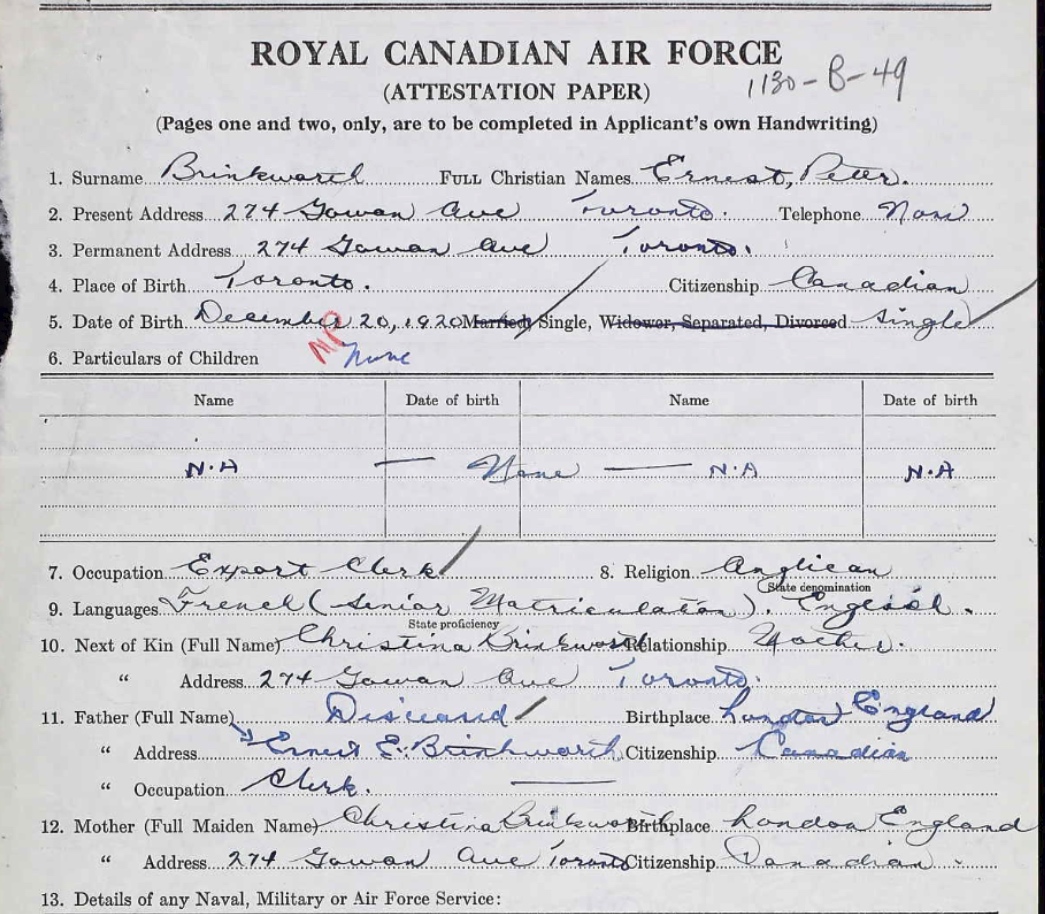 ROYAL CANADIAN AIR FORCE
1130-B-49
(ATTESTATION PAPER)
(Pages one and two, only, are to be completed in Applicant's own Handwriting)
1. Surname Brinkworth FULL Christian Names Ernest, Peter.
2. Present Address 274 Gowan Ave Toronto. Telephone None
3. Permanent Address 274 Gowan Ave Toronto.
4. Place of Birth Toronto. Citizenship Canadian
5. Date of Birth December 20, 1920 Married, Single, Widower, Separated, Divorced Single
6. Particulars of Children None
Name Date of birth Name Date of birth
N.A — None — N.A N.A
7. Occupation Export Clerk 8. Religion Anglican
(State denomination
9. Languages French (Senior Matriculation). English.
State proficiency
10. Next of Kin (Full Name) Christina Brinkworth Relationship Mother.
" Address 274 Gowan Ave Toronto.
11. Father (Full Name) Disceased Birthplace London England
" Address Ernest E. Brinkworth Citizenship Canadian
" Occupation Clerk. —
12. Mother (Full Maiden Name) Christina Brinkworth Birthplace London England
" Address 274 Gowan Ave Toronto Citizenship Canadian.
13. Details of any Naval, Military or Air Force Service: